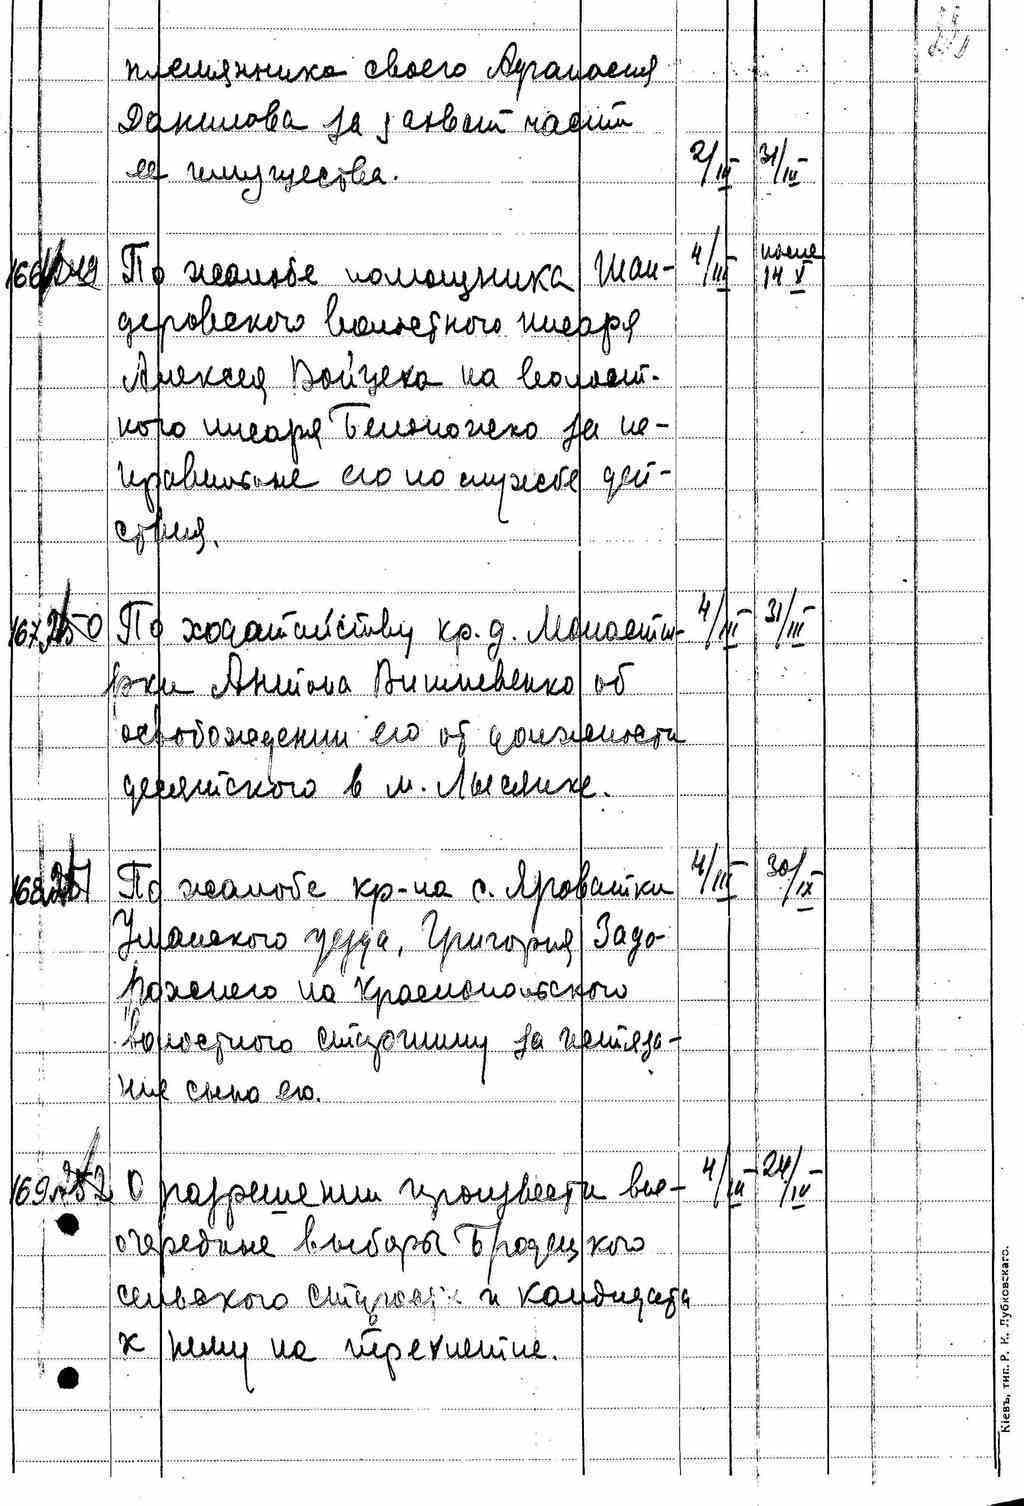 племянника своего Афанасия
Данилова за захват части
ее имущества. 2/III 31/III
166 По жалобе помощника Шан- 4/III после 14 V
деровского волостного писаря
Алексея Войцеха на волост-
ного писаря за не-
правильные его по службе дей-
ствия.
167 250 По ходатайству кр. д. Монасты- 4/III 31/III
рки Антона Вишневенко об
освобождении его от должности
десятского в м. Лысянке.
168 251 По жалобе кр-на с. Яроватки 4/III 30/IX
Уманского уезда, Григория Задо-
рожнего на Краснопольского
волостного старшину за истяза-
ние сына его.
169 252 О разрешении произвести вне- 4/III 24/IV
очередные выборы Бродецкого
сельского старосты и кандидата
к нему на трехлетие.
Кіевъ, тип. Р. К. Лубковскаго.